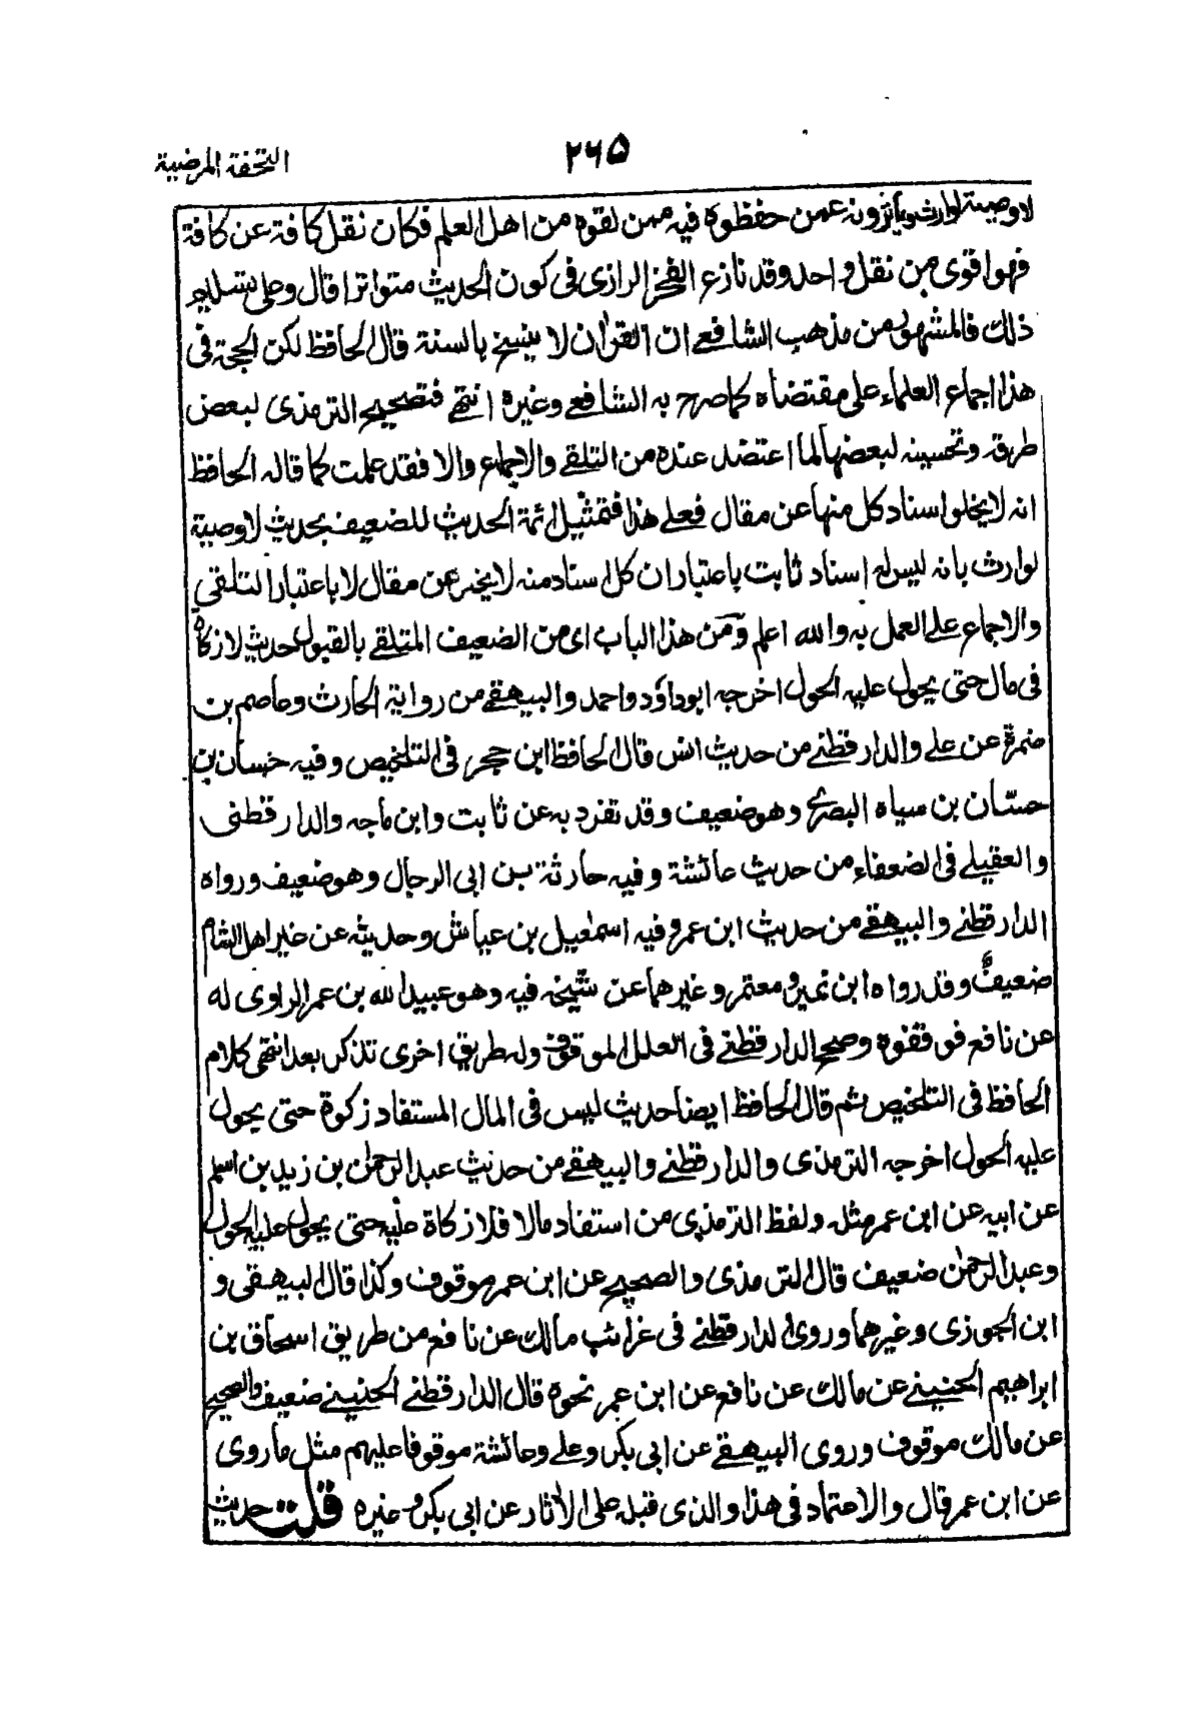 التحفة المرضية
٢٦٥
لا وصية لوارث ويأثرونه عمن حفظوه فيه ممن لقوه من اهل العلم فكان نقل كافة عن كافة
فهو اقوى من نقل واحد وقد نازع الفخر الرازى فى كون الحديث متواترا قال وعلى تسليم
ذلك فالمشهور من مذهب الشافعے ان القراٰن لا ينسخ بالسنة قال الحافظ لكن الحجة فى
هذا اجماع العلماء على مقتضاه كما صرح به الشافعے وغيره انتهے فتصحيح الترمذى لبعض
طرقه وتحسينه لبعضها لما اعتضد عنده من التلقے والاجماع والا فقد علمت كما قاله الحافظ
انه لا يخلو اسناد كل منها عن مقال فعلے هذا فتمثيل ائمة الحديث للضعيف بحديث لا وصية
لوارث بانه ليس له اسناد ثابت باعتبار ان كل اسناد منه لا يخلو عن مقال لا باعتبار التلقي
والاجماع علے العمل به والله اعلم ومن هذا الباب اى من الضعيف المتلقے بالقبول حديث لا زكاة
فى مال حتى يحول عليه الحول اخرجه ابو داؤد واحمد والبيهقے من رواية الحارث وعاصم بن
ضمرة عن علے والدارقطنے من حديث انس قال الحافظ ابن حجر فى التلخيص وفيه حسان بن
حسّان بن سياه البصرے وهو ضعيف وقد تفرد به عن ثابت وابن ماجه والدارقطنى
والعقيلے فى الضعفاء من حديث عائشة وفيه حارثة بن ابى الرجال وهو ضعيف ورواه
الدارقطنے والبيهقے من حديث ابن عمر وفيه اسمٰعيل بن عياش وحديثه عن غير اهل الشام
ضعيف وقد رواه ابن نمير ومعتمر وغيرهما عن شيخه فيه وهو عبيد الله بن عمر الراوى له
عن نافع فوقفوه وصحح الدارقطنے فى العلل الموقوف وله طريق اخرى تذكر بعد انتهى كلام
الحافظ فى التلخيص ثم قال الحافظ ايضا حديث ليس فى المال المستفاد زكوة حتى يحول
عليه الحول اخرجه الترمذى والدارقطنے والبيهقے من حديث عبد الرحمٰن بن زيد بن اسلم
عن ابيه عن ابن عمر مثله ولفظ الترمذى من استفاد مالا فلا زكاة عليه حتى يحول عليه الحول
وعبد الرحمٰن ضعيف قال الترمذى والصحيح عن ابن عمر موقوف وكذا قال البيهقى و
ابن الجوزى وغيرهما وروى الدارقطنے فى غرائب مالك عن نافع من طريق اسحاق بن
ابراهيم الحنينے عن مالك عن نافع عن ابن عمر نحوه قال الدارقطنے الحنينے ضعيف والصحيح
عن مالك موقوف وروى البيهقے عن ابى بكر وعلے وعائشة موقوفا عليهم مثل ما روى
عن ابن عمر قال والاعتماد فى هذا والذى قبله على الاٰثار عن ابى بكر وغيره قلت حديث